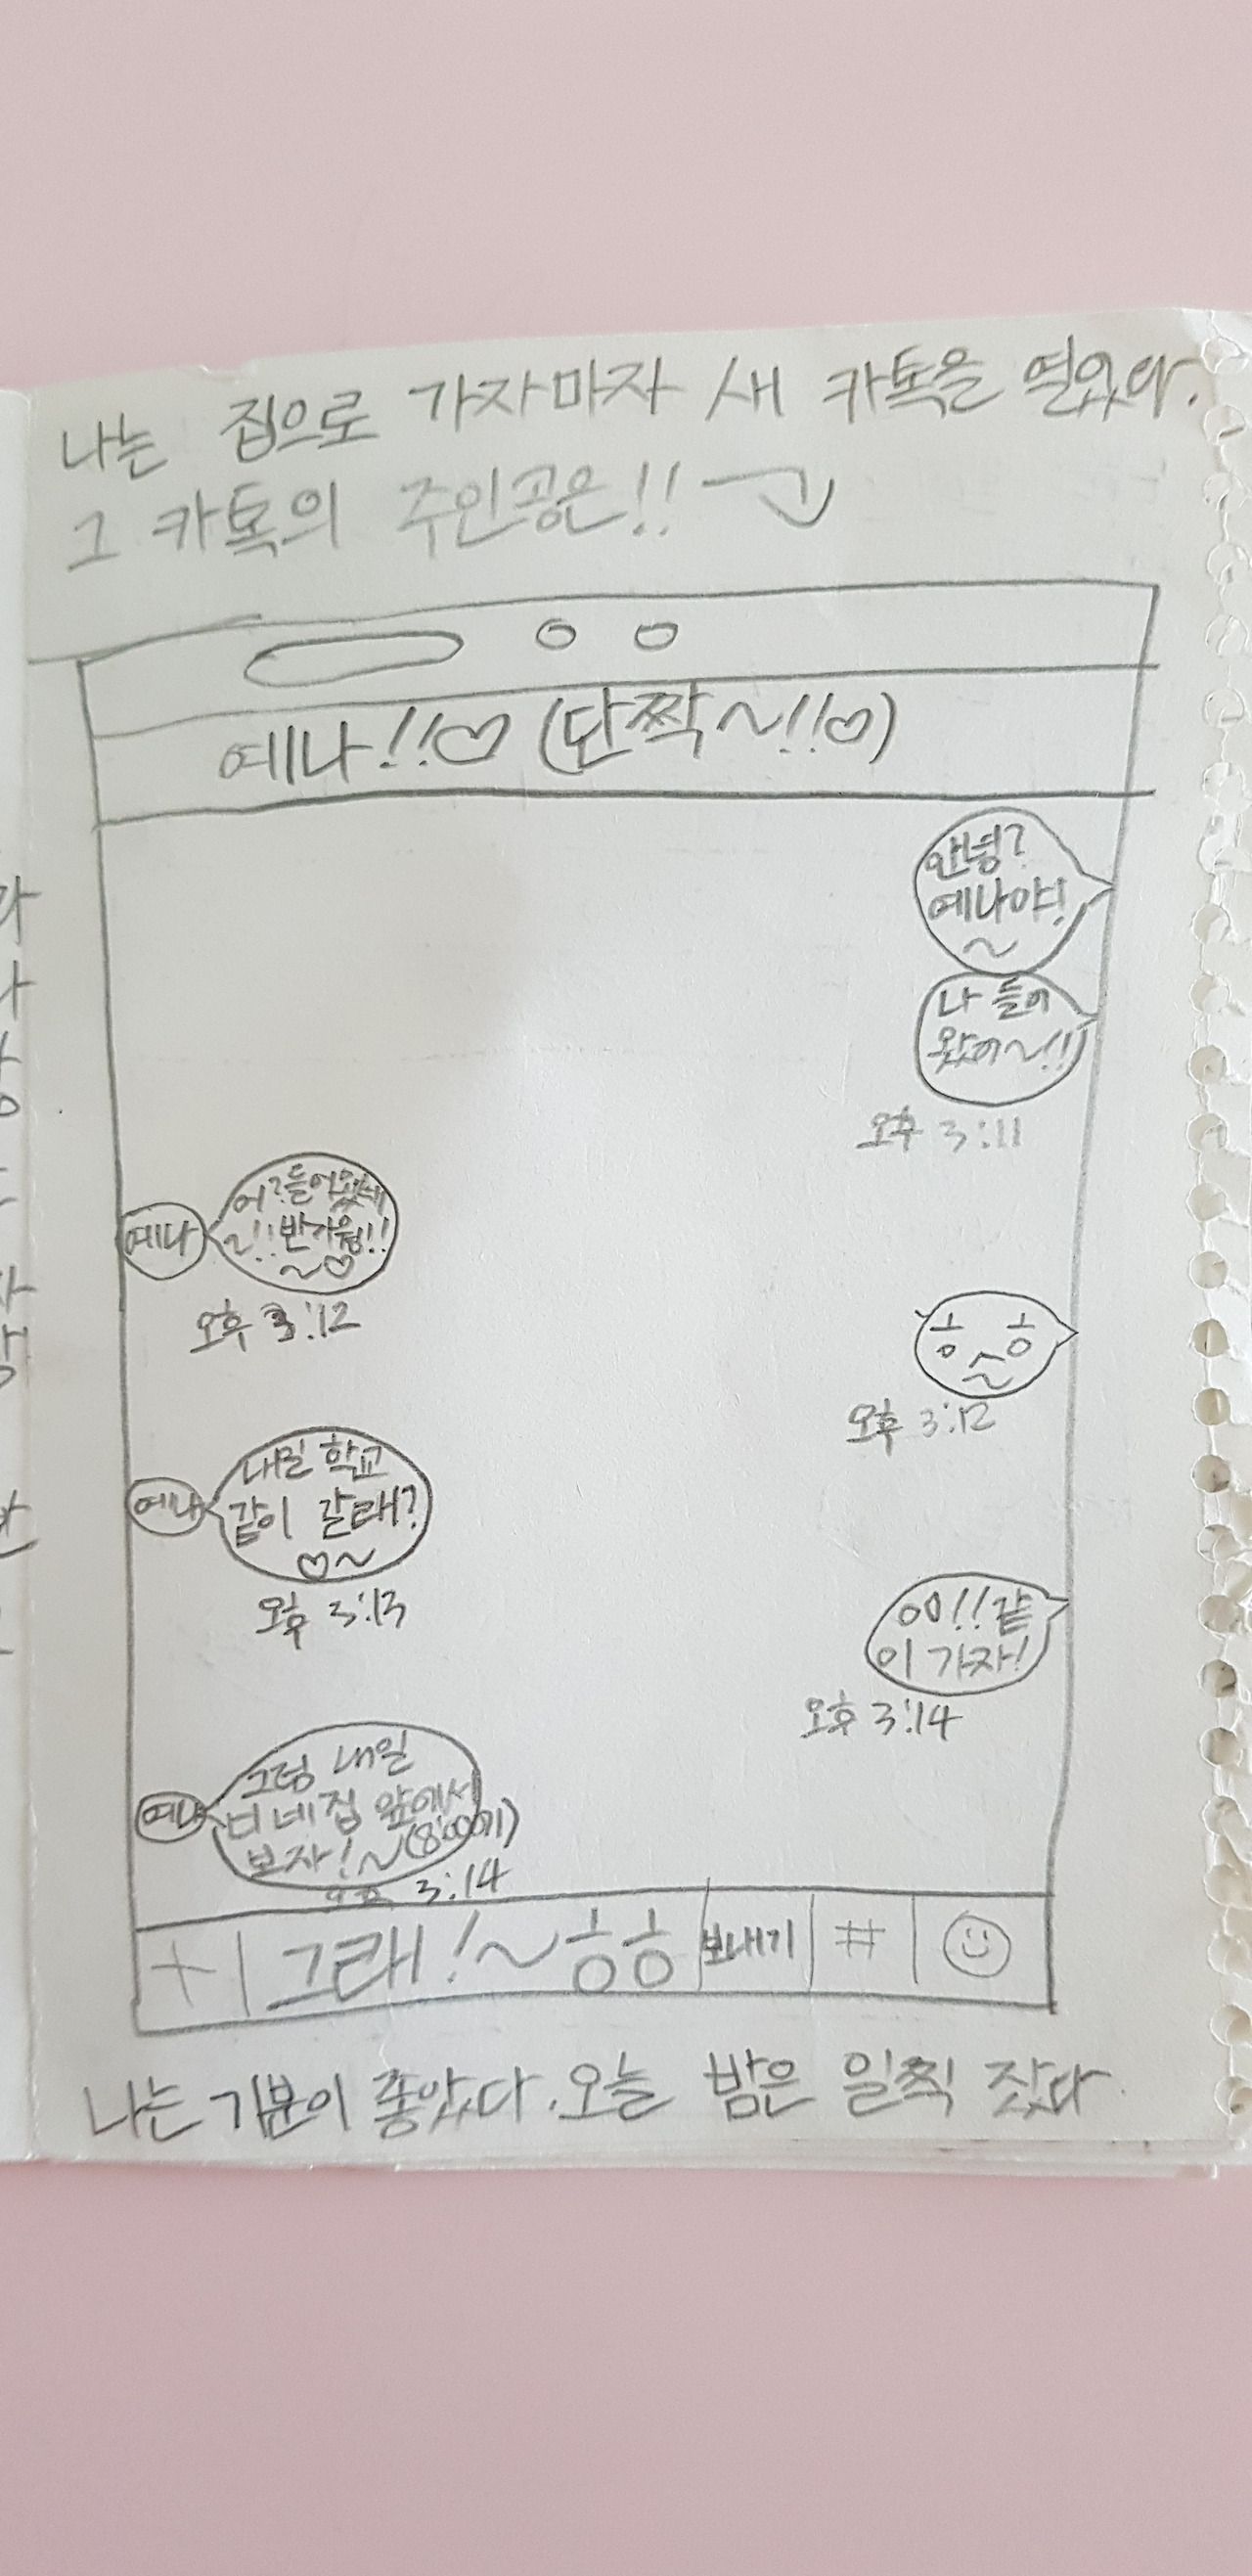 나는 집으로 가자마자 새 카톡을 열었다.
그 카톡의 주인공은!!
예나!!♡ (단짝~!!♡)
안녕?
예나야!
~
나 들어
왔어~!!
오후 3:11
예나
어?들어왔네
~!!반가웡!!
~♡
오후 3:12
흥흥
~
오후 3:12
예나
내일 학교
같이 갈래?
♡~
오후 3:13
ㅇㅇ!!같
이 가자!
오후 3:14
예나
그럼 내일
너네집 앞에서
보자!~(8:00에)
오후 3:14
+ 그래!~흥흥 보내기 #
나는 기분이 좋았다.오늘 밤은 일찍 잤다.